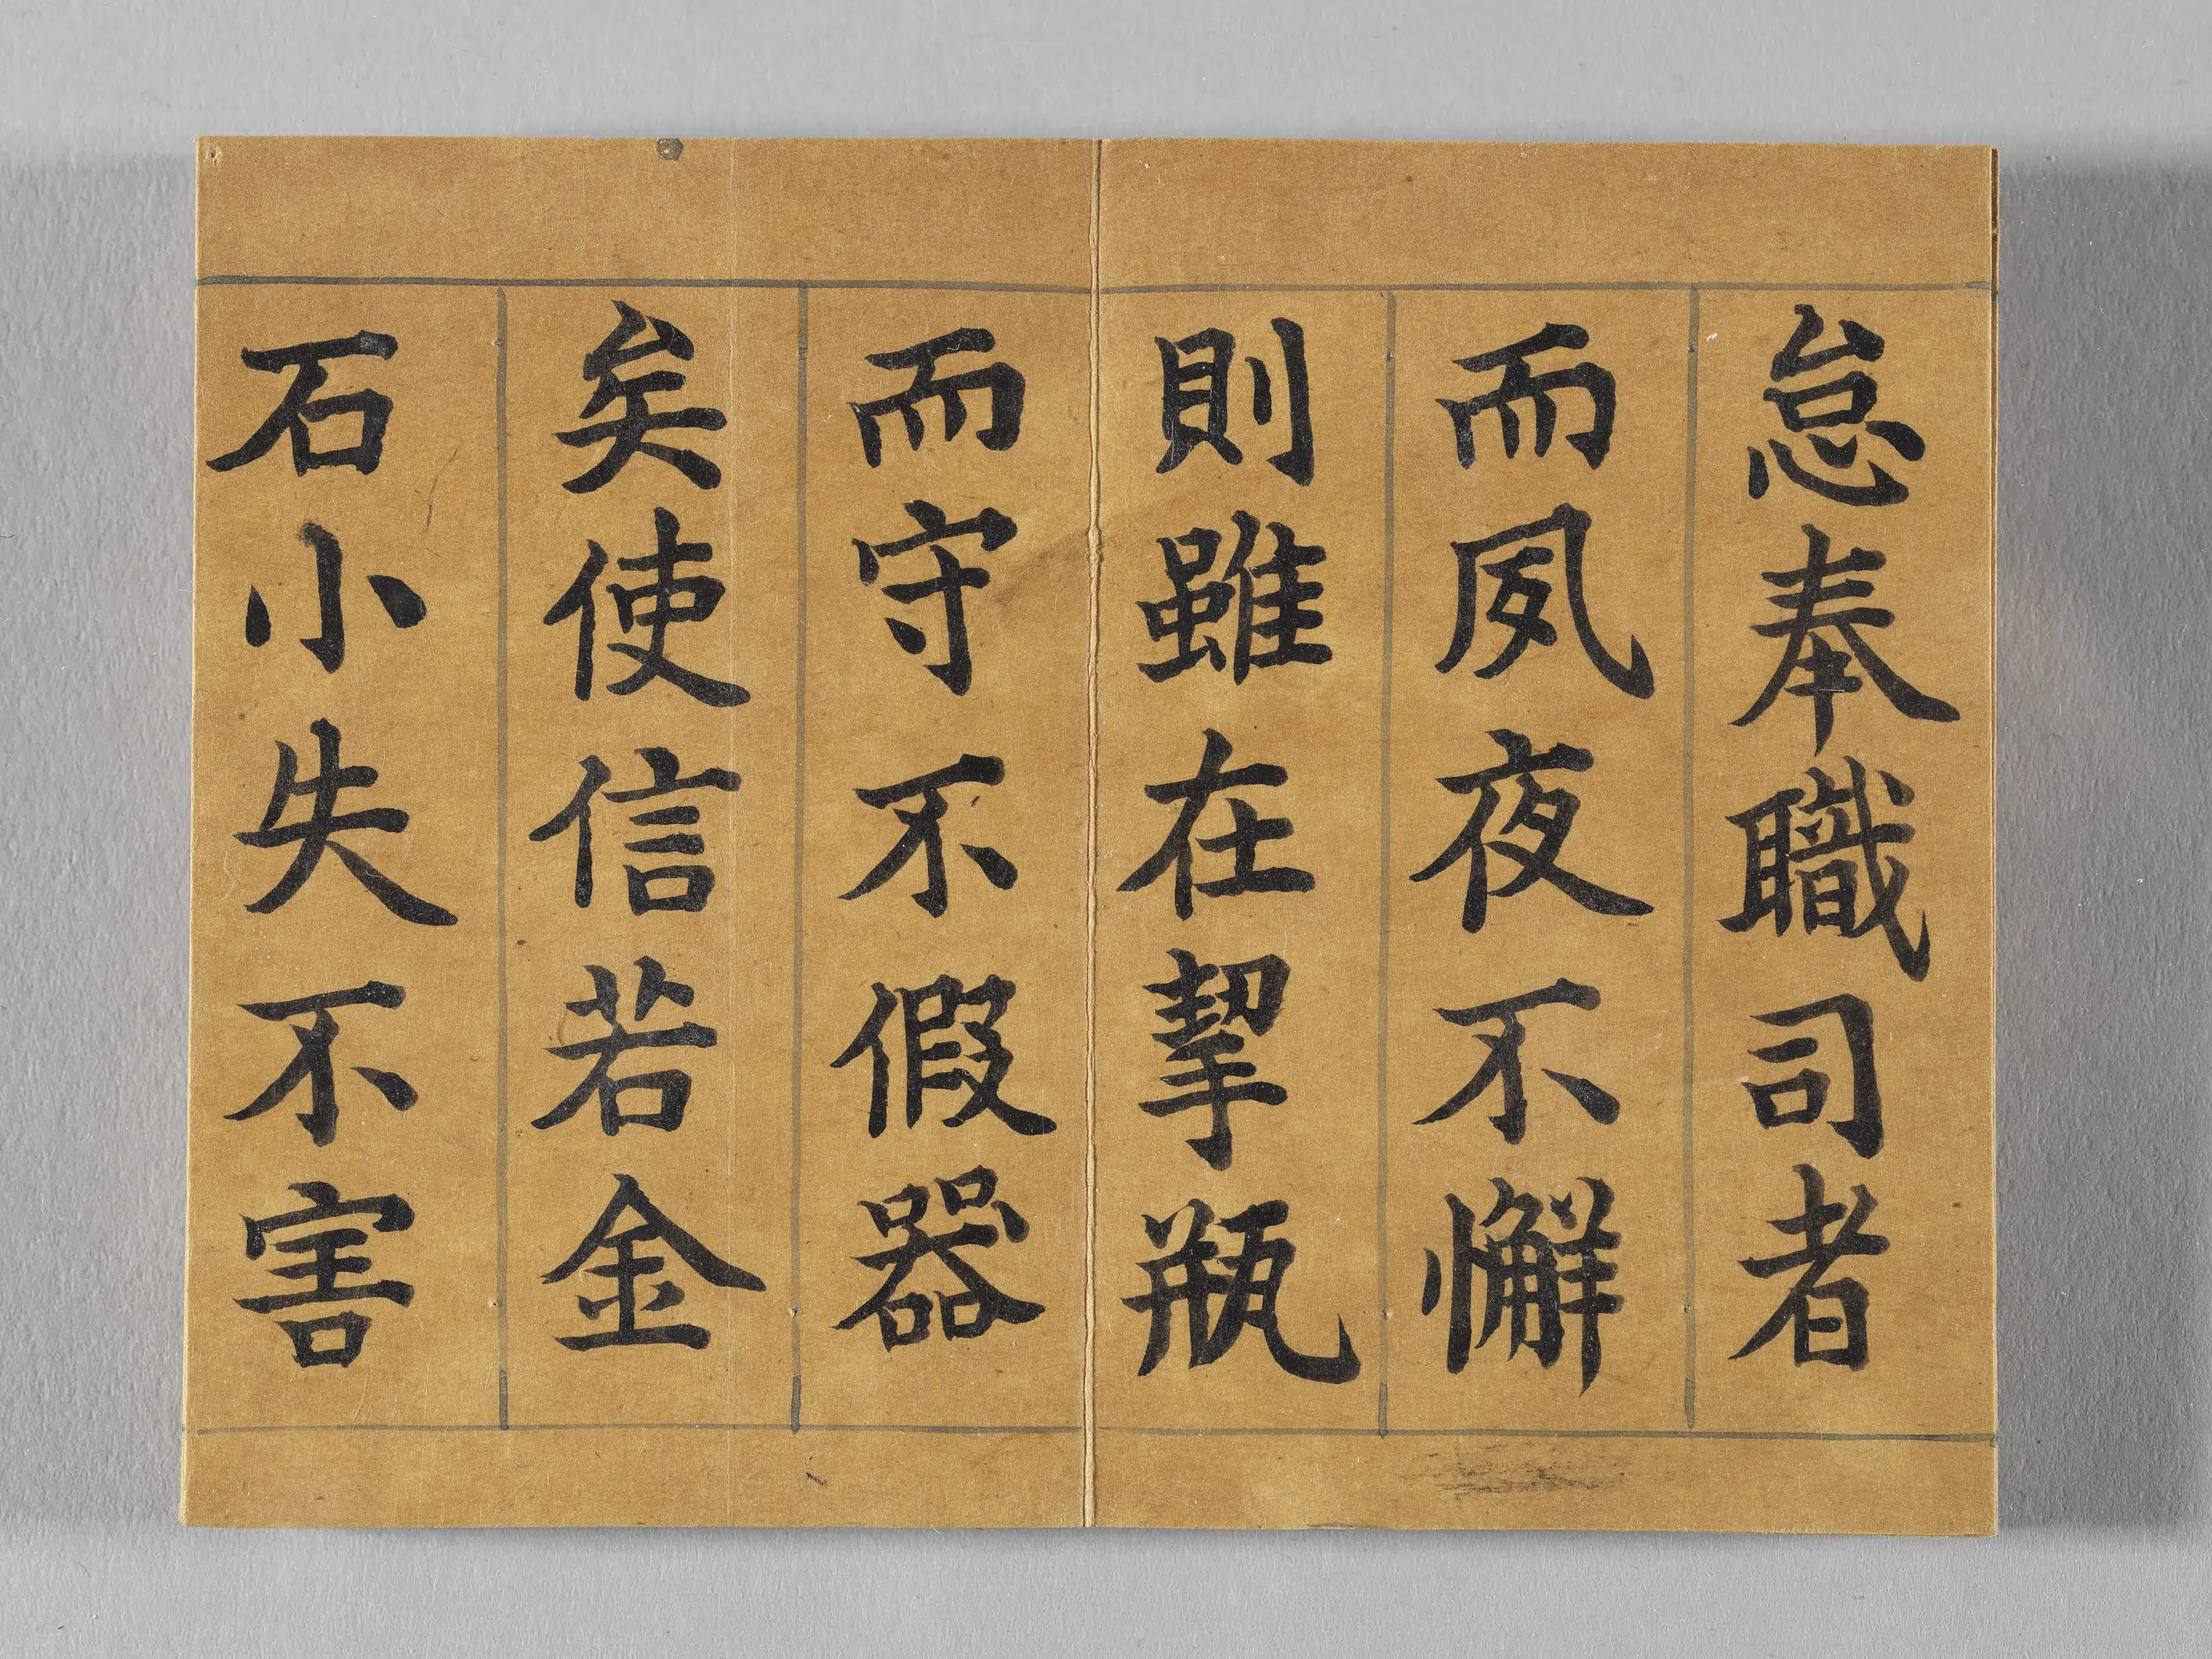 怠奉職司者
而夙夜不懈
則雖在挈瓶
而守不假器
矣使信若金
石小失不害